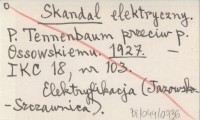 Skandal elektryczny.
P. Tennenbaum przeciw p.
Ossowskiemu. 1927. —
IKC 18, nr 103.
Elektryfikacja (Jazowsko-
-Szczawnica).